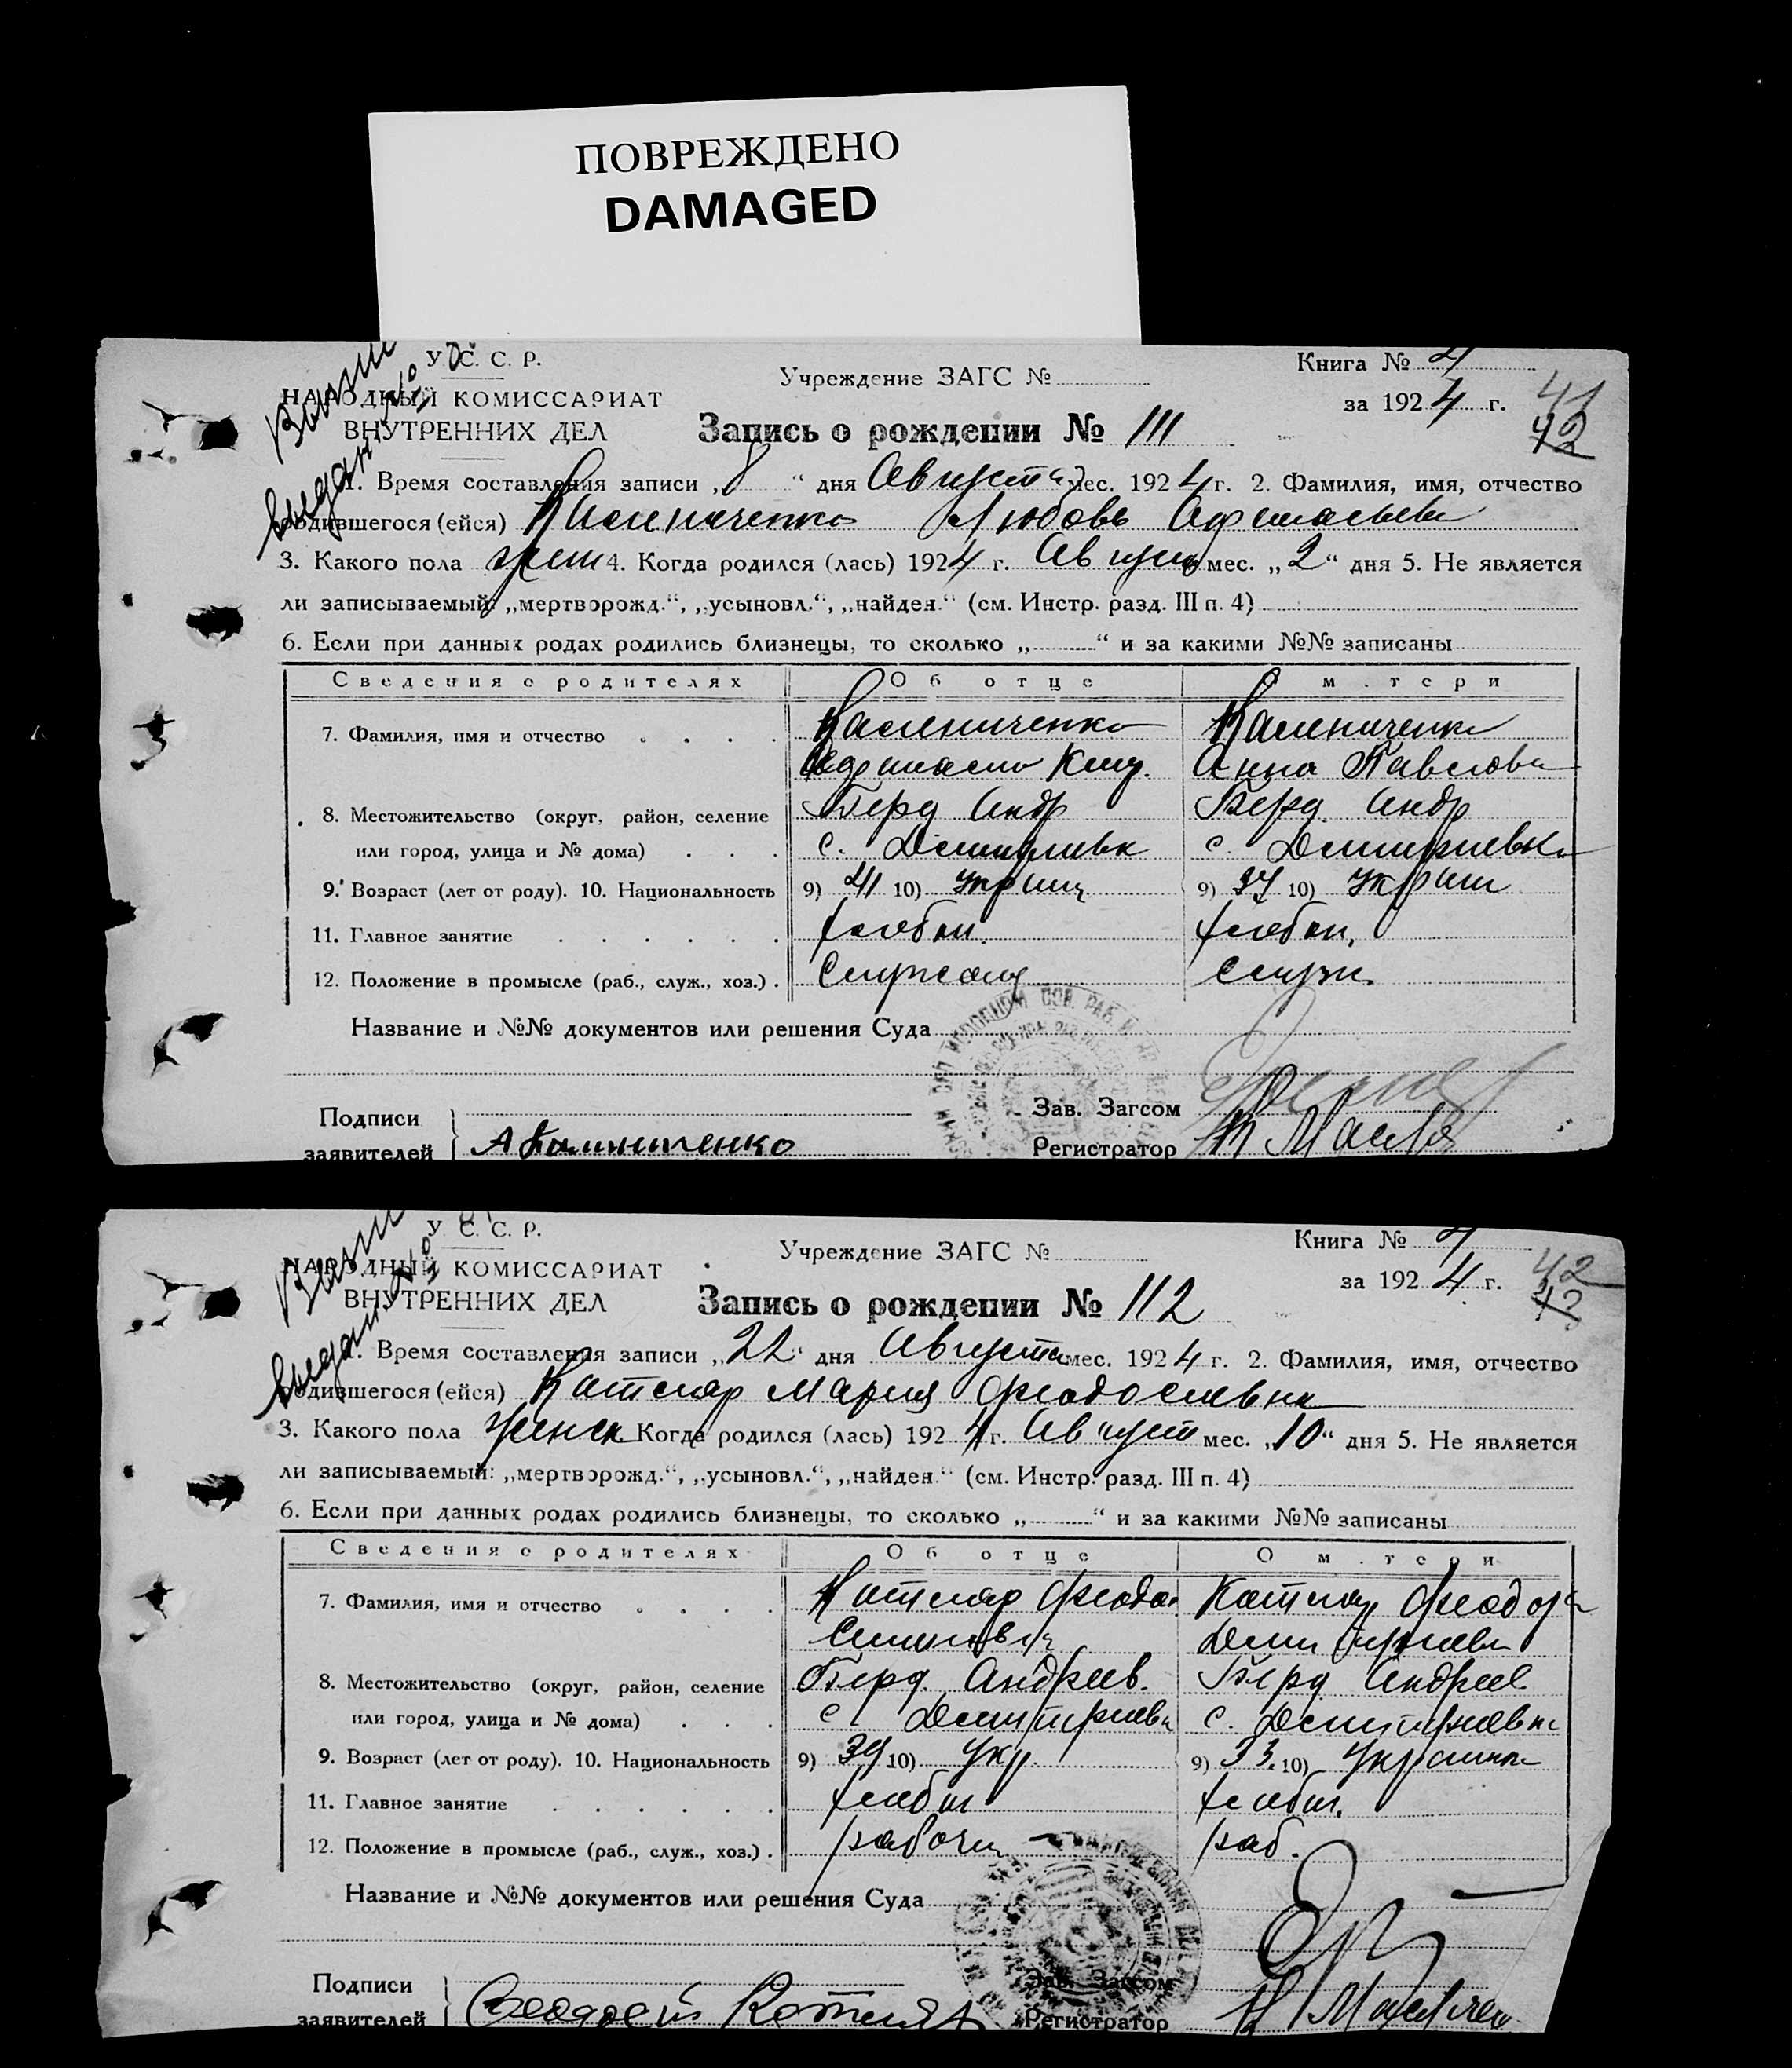 ПОВРЕЖДЕНО
DAMAGED
У. С. С. Р.
НАРОДНЫЙ КОМИССАРИАТ
ВНУТРЕННИХ ДЕЛ
Учреждение ЗАГС №
Книга № 4
за 1924 г.
41
42
Запись о рождении № 111
1. Время составления записи „8“ дня Августа мес. 1924 г. 2. Фамилия, имя, отчество
родившегося (ейся) Калениченко Любовь
3. Какого пола жен 4. Когда родился (лась) 1924 г. Август мес. „2“ дня 5. Не является
ли записываемый: „мертворожд.“, „усыновл.“, „найден.“ (см. Инстр. разд. III п. 4)
6. Если при данных родах родились близнецы, то сколько „ “ и за какими №№ записаны
Сведения о родителях Об отце О матери
7. Фамилия, имя и отчество Калениченко Калениченко
Анна Павлова
8. Местожительство (округ, район, селение Берд Андр Берд. Андр
или город, улица и № дома) с. с. Дмитриевка
9. Возраст (лет от роду). 10. Национальность 9) 41 10) Украин 9) 37 10) Украин
11. Главное занятие хлебоп. хлебоп.
12. Положение в промысле (раб., служ., хоз.) служ.
Название и №№ документов или решения Суда
Подписи
заявителей А Калениченко
Зав. Загсом
Регистратор
У. С. С. Р.
НАРОДНЫЙ КОМИССАРИАТ
ВНУТРЕННИХ ДЕЛ
Учреждение ЗАГС №
Книга № 4
за 1924 г.
42
43
Запись о рождении № 112
1. Время составления записи „22“ дня Августа мес. 1924 г. 2. Фамилия, имя, отчество
родившегося (ейся) Котляр Мария Феодосиевна
3. Какого пола женск Когда родился (лась) 1924 г. Август мес. „10“ дня 5. Не является
ли записываемый: „мертворожд.“, „усыновл.“, „найден.“ (см. Инстр. разд. III п. 4)
6. Если при данных родах родились близнецы, то сколько „ “ и за какими №№ записаны
Сведения о родителях Об отце О матери
7. Фамилия, имя и отчество Котляр Феодос. Котляр Феодора
Дмитриевн
8. Местожительство (округ, район, селение Берд. Андреев. Берд Андреев
или город, улица и № дома) с Дмитриевк с. Дмитриевк
9. Возраст (лет от роду). 10. Национальность 9) 39 10) Укр. 9) 33. 10) Украинк
11. Главное занятие хлебоп хлебоп.
12. Положение в промысле (раб., служ., хоз.) рабочи раб.
Название и №№ документов или решения Суда
Подписи
заявителей Феодосий Котляр
Зав. Загсом
Регистратор